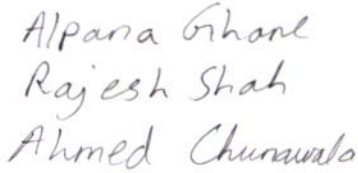 Alpana Ghare
Rajesh Shah
Ahmed Chunawala